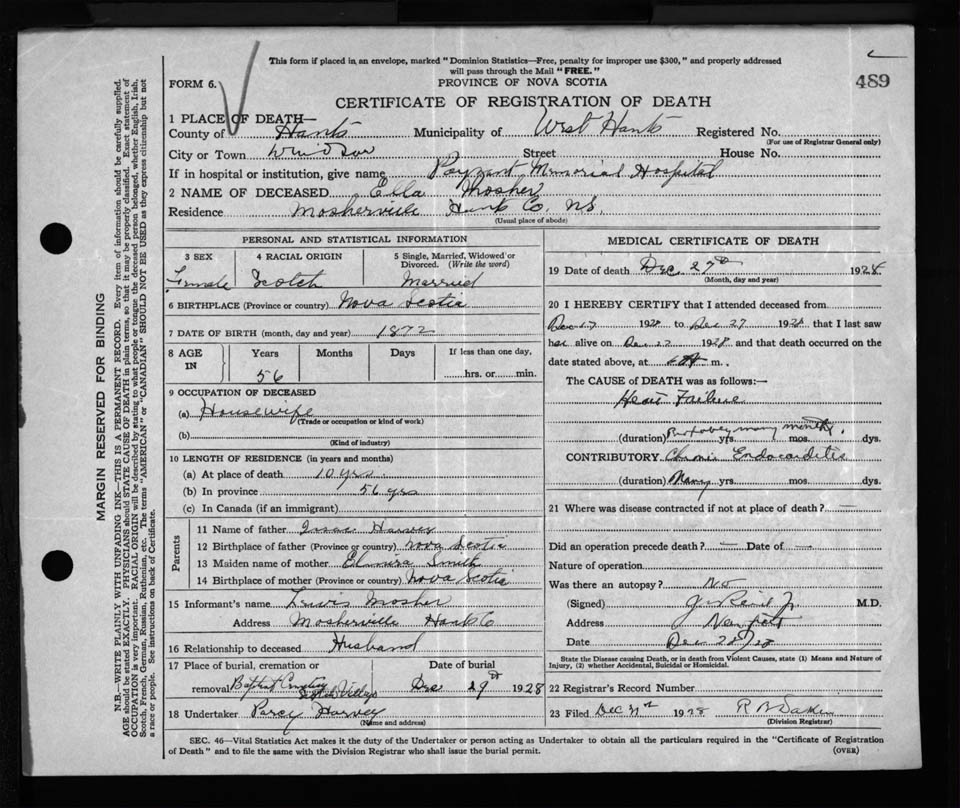 This form if placed in an envelope, marked "Dominion Statistics—Free, penalty for improper use $300," and properly addressed
will pass through the Mail "FREE."
489
FORM 6.
PROVINCE OF NOVA SCOTIA
CERTIFICATE OF REGISTRATION OF DEATH
1 PLACE OF DEATH—
County of Hants Municipality of West Hants Registered No.
(For use of Registrar General only)
City or Town Windsor Street House No.
If in hospital or institution, give name Payzant Memorial Hospital
2 NAME OF DECEASED Ella Mosher
Residence Mosherville Hants Co. N.S.
(Usual place of abode)
PERSONAL AND STATISTICAL INFORMATION
3 SEX 4 RACIAL ORIGIN 5 Single, Married, Widowed or
Divorced. (Write the word)
Female Scotch Married
6 BIRTHPLACE (Province or country) Nova Scotia
7 DATE OF BIRTH (month, day and year) 1872
8 AGE IN Years Months Days If less than one day,
56 hrs. or min.
9 OCCUPATION OF DECEASED
(a) Housewife
(Trade or occupation or kind of work)
(b)
(Kind of industry)
10 LENGTH OF RESIDENCE (in years and months)
(a) At place of death 10 yrs.
(b) In province 56 yrs
(c) In Canada (if an immigrant)
Parents
11 Name of father Isaac Harvey
12 Birthplace of father (Province or country) Nova Scotia
13 Maiden name of mother Elmira Smith
14 Birthplace of mother (Province or country) Nova Scotia
15 Informant's name Lewis Mosher
Address Mosherville Hants Co
16 Relationship to deceased Husband
17 Place of burial, cremation or Date of burial
removal Baptist Dec 29th 1928
18 Undertaker Percy Harvey
(Name and address)
MEDICAL CERTIFICATE OF DEATH
19 Date of death Dec 27th 1928
(Month, day and year)
20 I HEREBY CERTIFY that I attended deceased from
Dec 17 1928 to Dec 27 1928 that I last saw
her alive on Dec 27 1928 and that death occurred on the
date stated above, at m.
The CAUSE of DEATH was as follows:—
Heart Failure
(duration) Probably many months. yrs. mos. dys.
CONTRIBUTORY. Chronic Endocarditis
(duration) Many yrs. mos. dys.
21 Where was disease contracted if not at place of death? —
Did an operation precede death? — Date of —
Nature of operation
Was there an autopsy? No
(Signed) M.D.
Address Newport
Date Dec 28/28
State the Disease causing Death, or in death from Violent Causes, state (1) Means and Nature of
Injury, (2) whether Accidental, Suicidal or Homicidal.
22 Registrar's Record Number
23 Filed Dec 31st 1928
(Division Registrar)
SEC. 46—Vital Statistics Act makes it the duty of the Undertaker or person acting as Undertaker to obtain all the particulars required in the "Certificate of Registration
of Death" and to file the same with the Division Registrar who shall issue the burial permit.
(OVER)
MARGIN RESERVED FOR BINDING
N.B.—WRITE PLAINLY WITH UNFADING INK—THIS IS A PERMANENT RECORD. Every item of information should be carefully supplied.
AGE should be stated EXACTLY. PHYSICIANS should STATE CAUSE OF DEATH in plain terms, so that it may be properly classified. Exact statement of
OCCUPATION is very important. RACIAL ORIGIN will be described by stating to what people or tongue the deceased person belonged, whether English, Irish,
Scotch, French, German, Russian, Ruthenian, etc. The terms "AMERICAN" or "CANADIAN" SHOULD NOT BE USED as they express citizenship but not
a race or people. See instructions on back of Certificate.